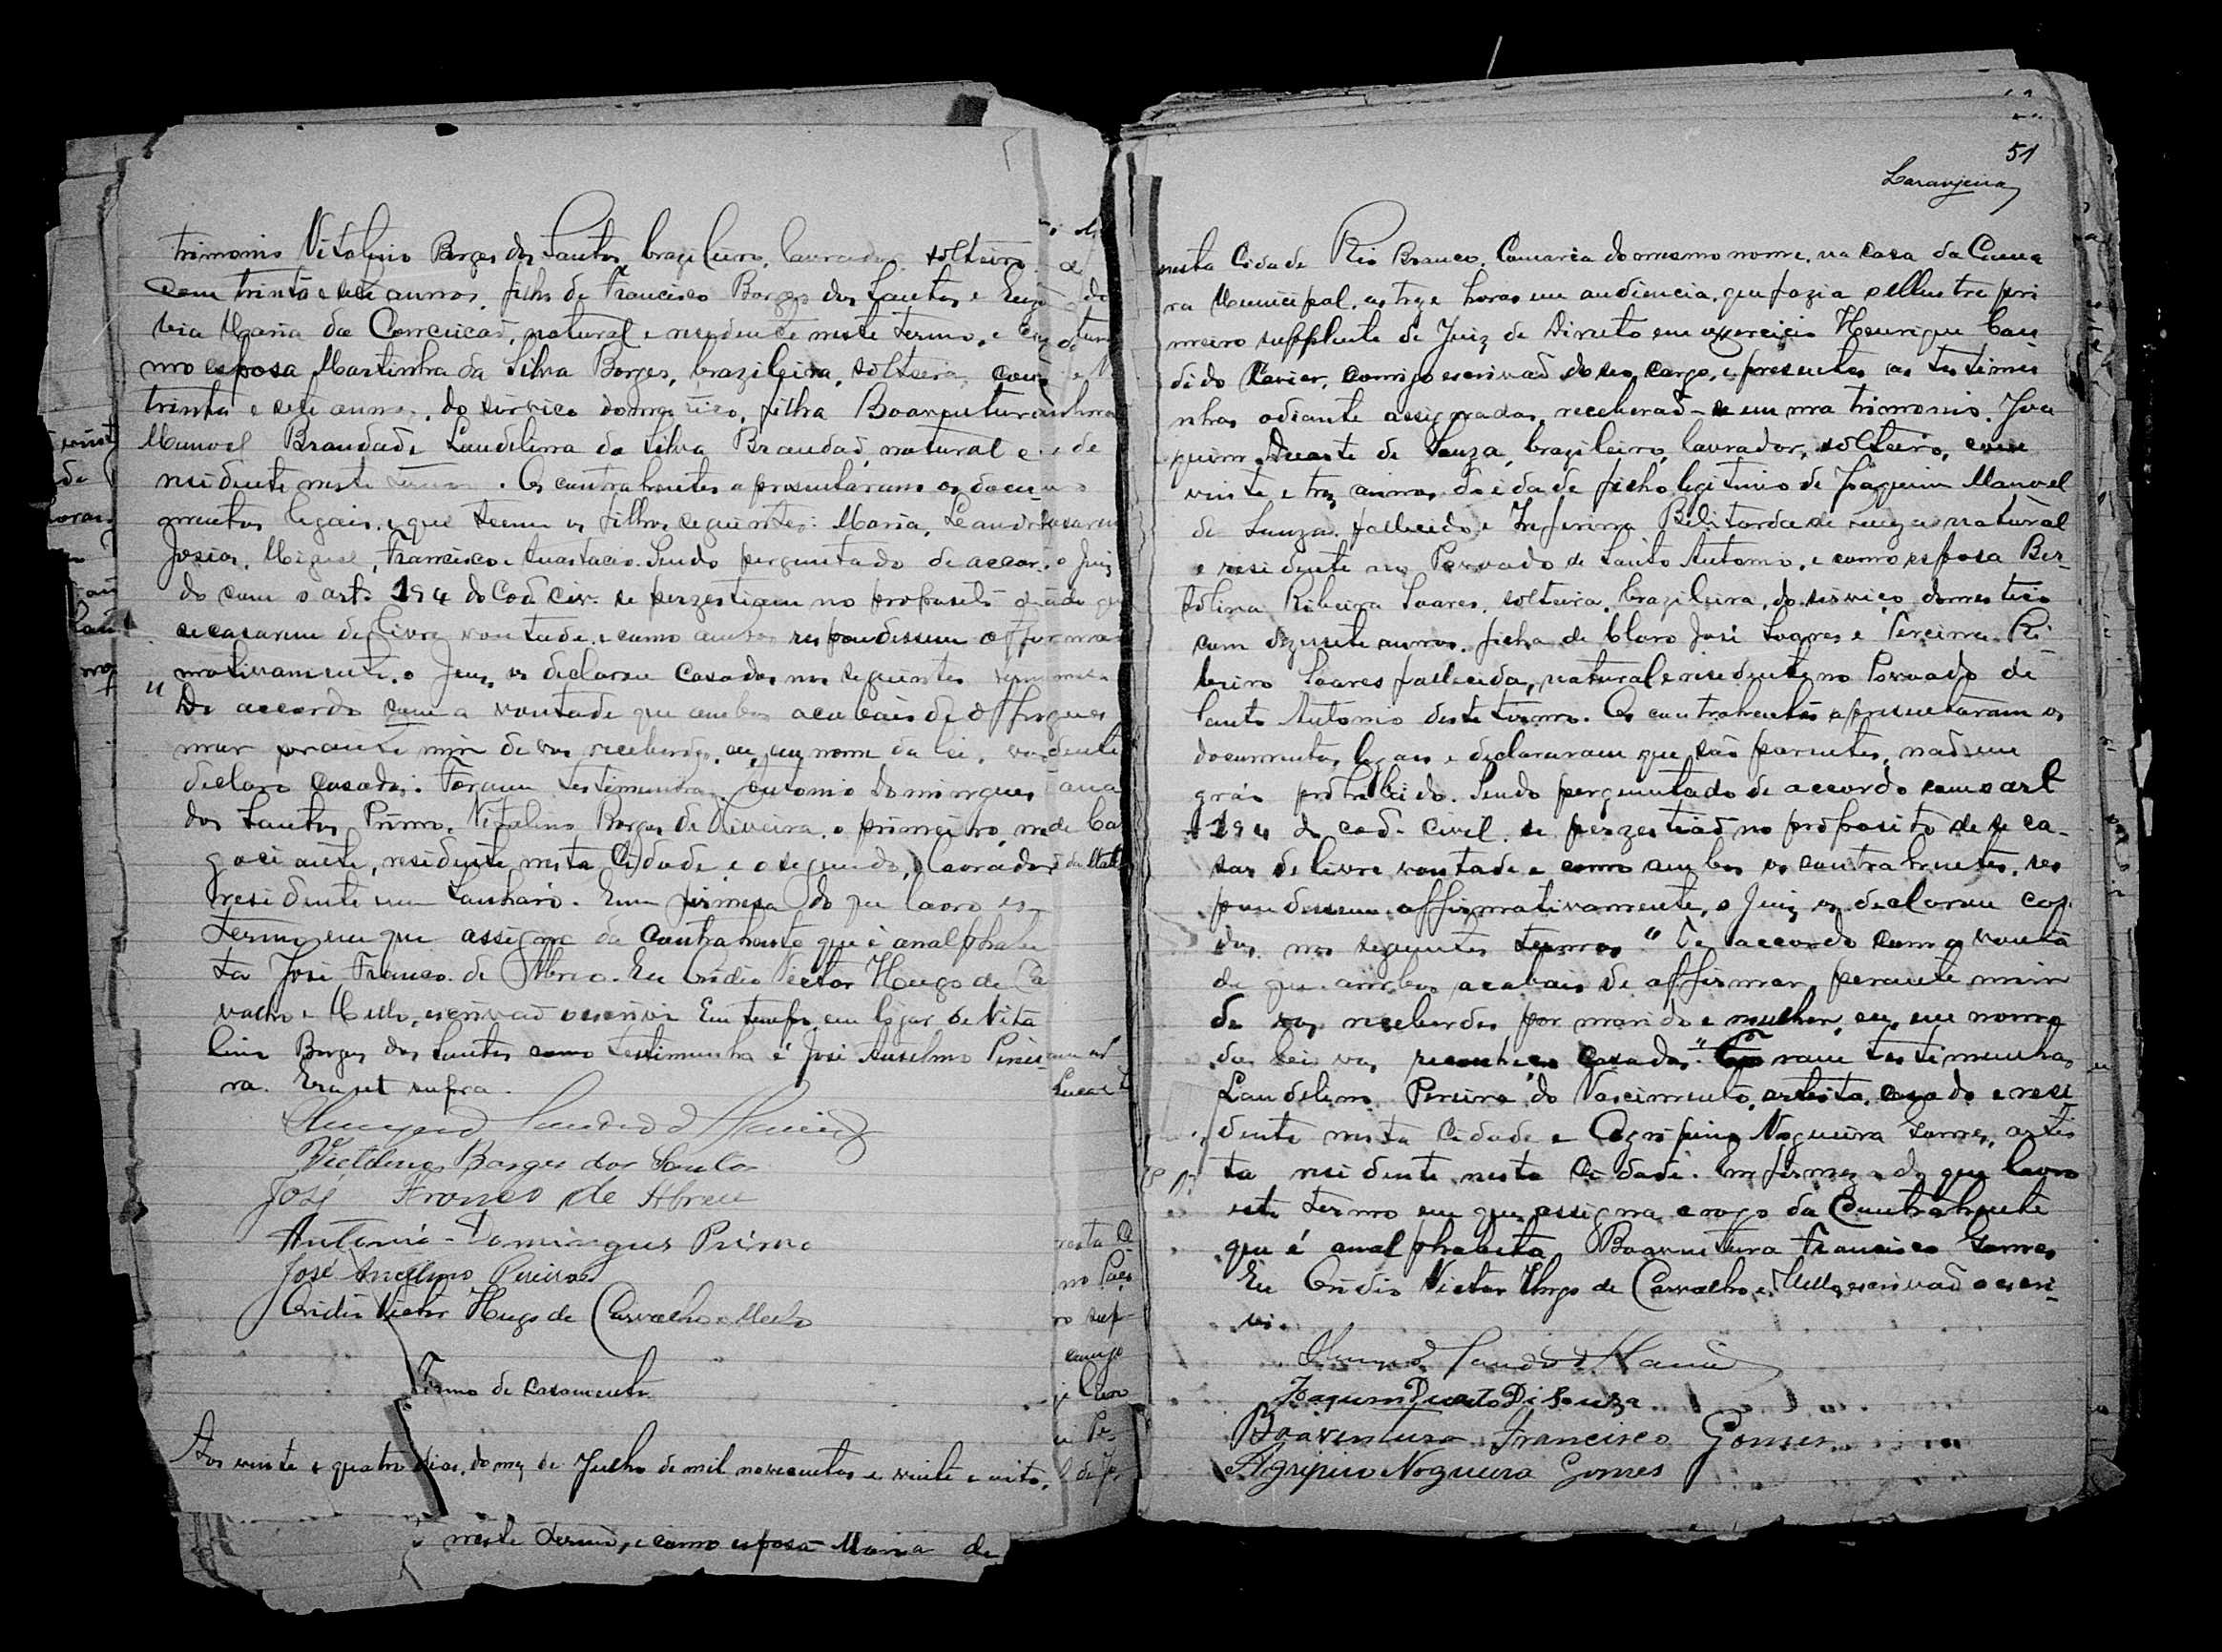 trimonio Vitalino Borges dos Santos, brazileiro, lavrador, solteiro
com trinta e sete annos, filho de Francisco Borges dos Santos e
Maria da Conceicaõ, natural e residente neste termo, e co
mo esposa Martinha da Silva Borges, brazileira, solteira, com
trinta e sete annos, do serviço domestico, filha Boaventura
Manoel Brandaõ e Laudelina da Silva Brandaõ, natural e
residente neste termo. Os contrahentes apresentáram os docu-
mentos legais, e que teem os filhos seguintes: Maria,
Josias, Miguel, Francisco e Anastacio. Sendo perguntado de accor-
do com o art. 194 do Cod civ. se perzestiam no proposito de
se casarem de livre vontade, e como ambos respondessem affir
mativamente, o Juiz os declarou casados nos seguintes termos
"De accordo com a vontade que ambos acabais de affir
mar perante mim de vos receberdes, eu, em nome da lei, vos
declaro casados. Foram testimunhas Antonio Domingues
dos Santos Primo, Vitalino Borges de Oliveira, o primeiro, ne
gociante, residente nesta Cidade e o segundo, lavrador
residente em Tanhaxi. Em firmeza do que lavro es
termo em que assigna da Contrahente que é analphabe
ta José Franco de Abreu. Eu Ovidio Victor Hugo de Ca
valho e Mello, escrivaõ o escrivi Em tempo em logar de Vita
lino Borges dos Santos como testimunha é José Anselmo Perei-
ra. Era ut supra.
Victalino Borges dos Santos
José Franco de Abreu
Antonio Domingues Primo
José Anselmo Pereira
Ovidio Victor Hugo de Carvalho e Mello
Termo de casamento
Aos vinte e quatro dias, do mez de Julho de mil novecentos e vinte e oito,
neste termo, e como esposa Maria de
51
Laranjeira
nesta Cidade Rio Branco, Comarca do mesmo nome, na casa da Cama
ra Municipal, as treze horas em audiencia, que fazia o Illustre pri
meiro supplente de Juiz de Direito em exercicio Henrique Can
dido Xavier, comigo escrivaõ do seu cargo, e presentes as testimu
nhas adiante assignadas, receberaõ-se em matrimonio, Joa
quim Duarte de Souza, brazileiro, lavrador, solteiro, com
vinte e tres annos de idade filho legitimo de Joaquim Manoel
de Souza, fallecido e de Souza natural
e residente no Povoado de Santo Antonio, e como esposa Ber-
tolina Ribeira Soares, solteira, brazileira, do serviço domestico
com dezesete annos, filha de Claro José Soares e Ri-
beiro Soares fallecida, natural e residente no Povoado de
Santo Antonio deste termo. Os contrahentes apresentáram os
documentos legaes e declararam que são parentes, naõ em
gráo prohibido. Sendo perguntado de accordo com o art
194 do cod. civil se perzestiaõ no proposito de se ca-
sar de livre vontade e como ambos os contrahentes, res
pondessem affirmativamente, o Juiz os declarou casa
dos nos seguintes termos "De accordo com a vonta
de que ambos acabais de affirmar perante mim
de vos receberdes por marido e mulher, eu, em nome
da lei vos reconheço casados." Foram testimunhas
Laudelino Pereira do Nascimento, artista, casado e resi
dente nesta Cidade e Agripino Nogueira Gomes, artis
ta residente nesta Cidade. Em firmeza do que lavro
este termo em que assigna a rogo da Contrahente
que é analphabeta Boaventura Francisco Gomes
Eu Ovidio Victor Hugo de Carvalho e Mello, escrivaõ o escri-
vi.
Joaquim Duarto Di Souza
Boaventura Francisco Gomes
Agripino Nogueira Gomes